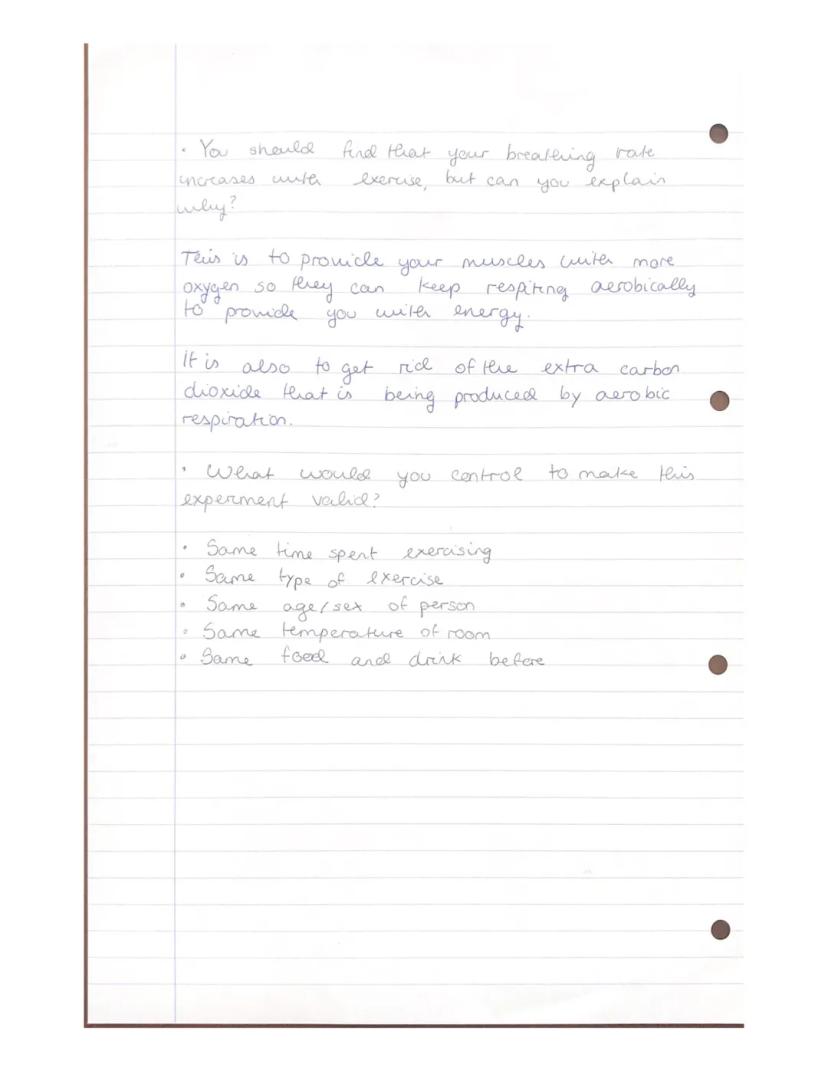 • You should find that your breathing rate
increases with exercise, but can you explain
why?
This is to provide your muscles with more
oxygen so they can keep respiting aerobically
to provide you with energy.
It is also to get rid of the extra carbon
dioxide that is being produced by aerobic
respiration.
• What would you control to make this
experment valid?
• Same time spent exercising
• Same type of exercise
• Same age/sex of person
• Same temperature of room
• Same food and drink before